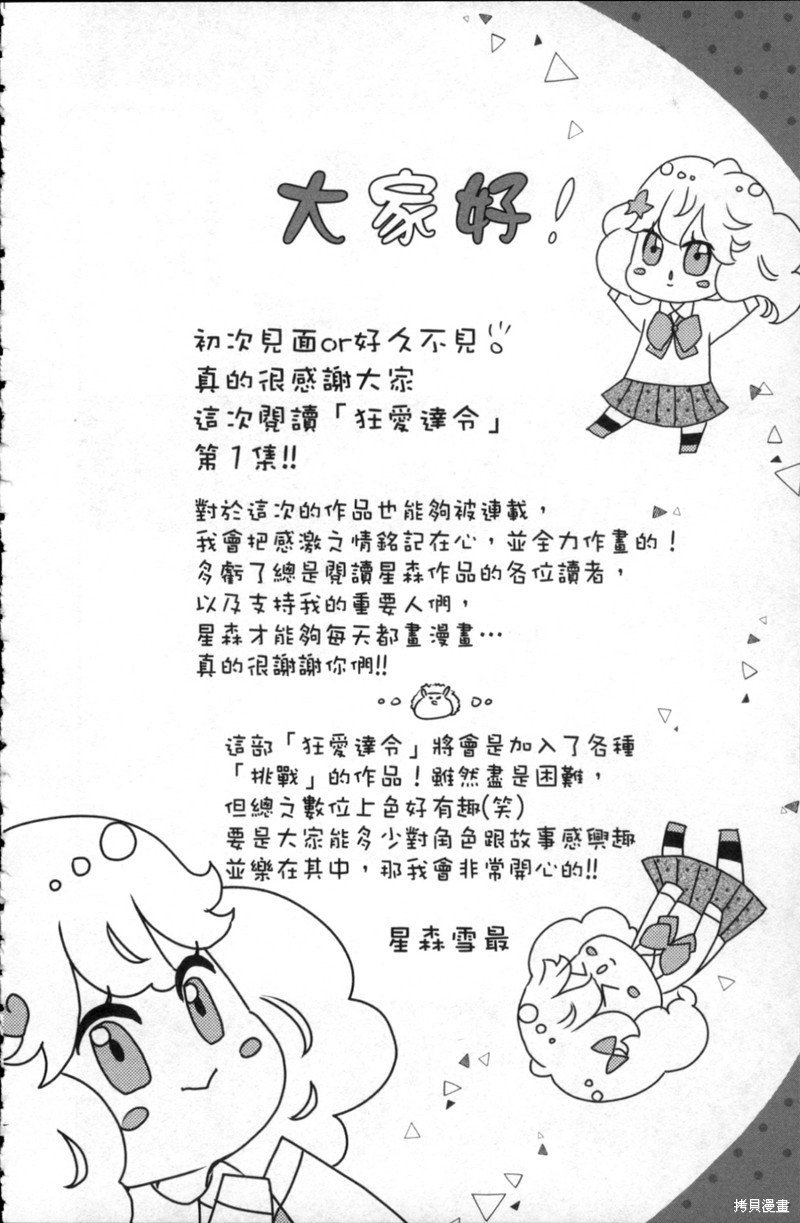 大家好!
初次見面or好久不見!
真的很感謝大家
這次閱讀「狂愛達令」
第1集!!
對於這次的作品也能夠被連載,
我會把感激之情銘記在心,並全力作畫的!
多虧了總是閱讀星森作品的各位讀者,
以及支持我的重要人們,
星森才能夠每天都畫漫畫…
真的很謝謝你們!!
這部「狂愛達令」將會是加入了各種
「挑戰」的作品!雖然盡是困難,
但總之數位上色好有趣(笑)
要是大家能多少對角色跟故事感興趣
並樂在其中,那我會非常開心的!!
星森雪最
拷貝漫畫